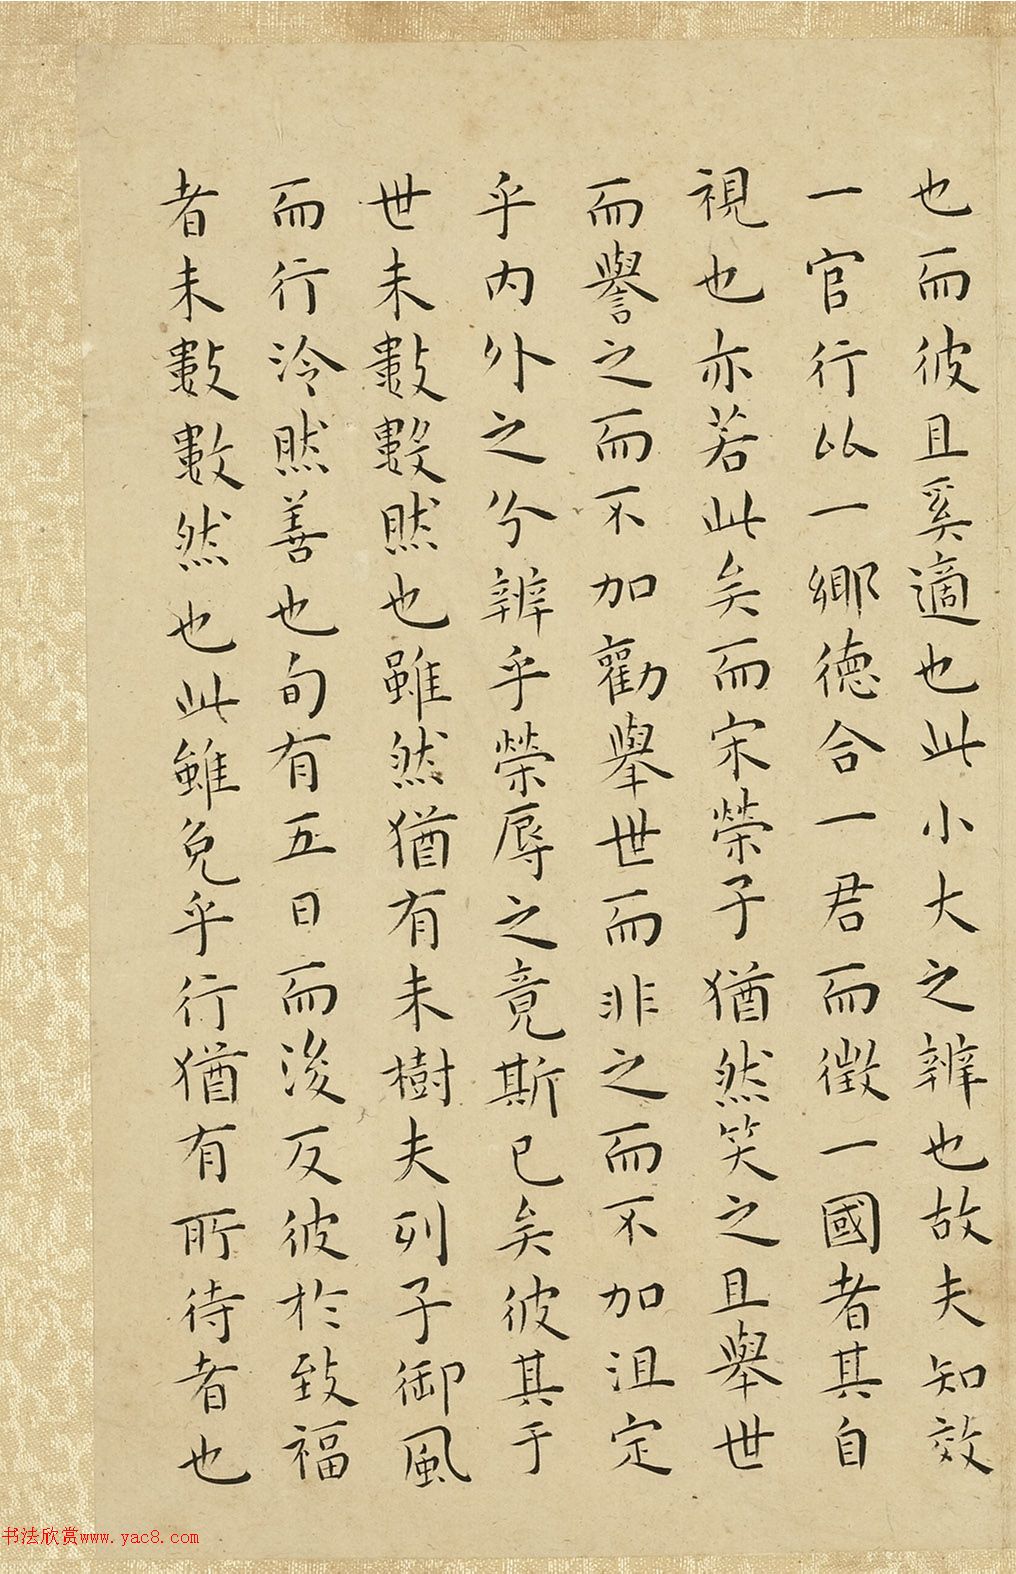 也而彼且奚適也此小大之辨也故夫知效
一官行比一鄉德合一君而徵一國者其自
視也亦若此矣而宋榮子猶然笑之且舉世
而譽之而不加勸舉世而非之而不加沮定
乎内外之分辨乎榮辱之竟斯已矣彼其于
世未數數然也雖然猶有未樹夫列子御風
而行泠然善也旬有五日而後反彼於致福
者未數數然也此雖免乎行猶有所待者也
书法欣赏www.yac8.com